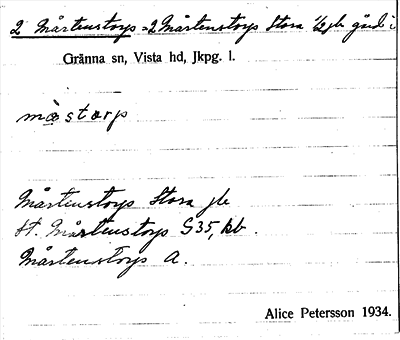 2 Mårtenstorp = 2 Mårtenstorp Stora 1/2 jb gård i
Gränna sn, Vista hd, Jkpg. l.
måstorp
Mårtenstorp Stora jb
St. Mårtenstorp G35, kb.
Mårtenstorp A.
Alice Petersson 1934.